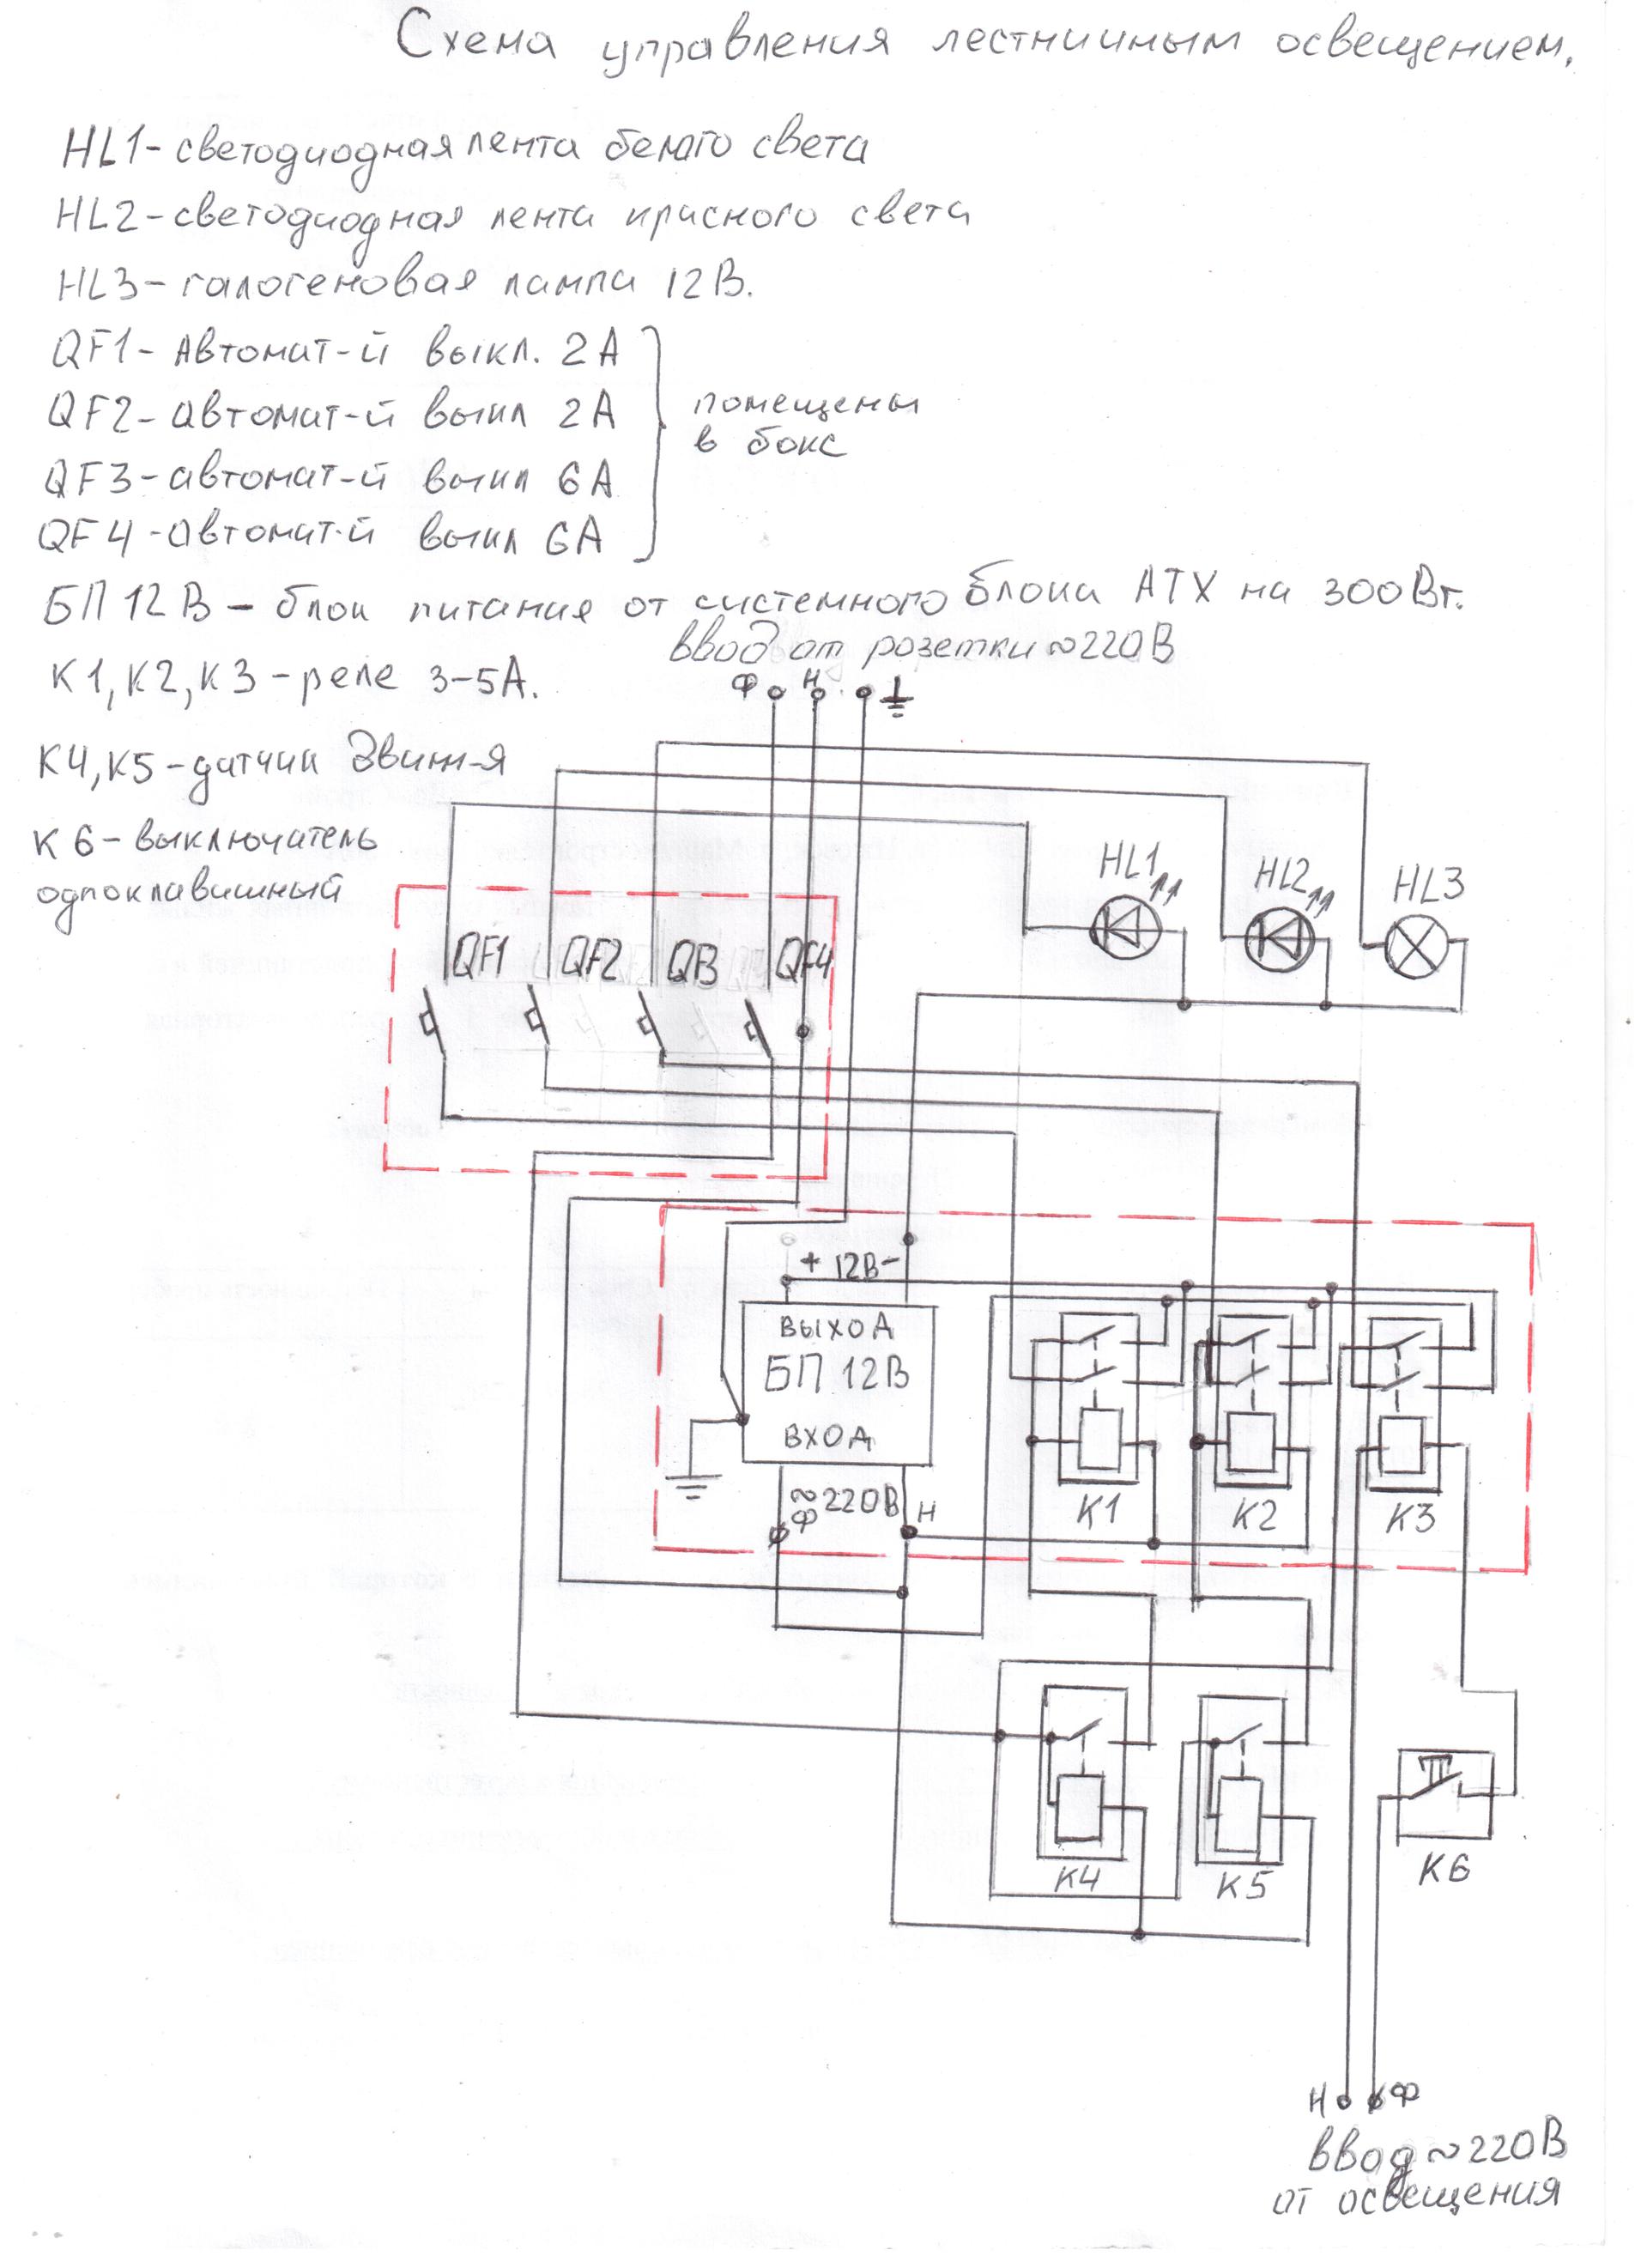 Схема управления лестничным освещением.
HL1- светодиодная лента белого света
HL2- светодиодная лента красного света
HL3- галогеновая лампа 12В.
QF1- Автомат-й выкл. 2А
QF2- автомат-й выкл 2А
QF3- автомат-й выкл 6А
QF4- автомат-й выкл 6А
помещены
в бокс
БП 12В - блок питания от системного блока АТХ на 300Вт.
К1, К2, К3 - реле 3-5А.
К4, К5 - датчик движ-я
К6 - выключатель
одноклавишный
ввод от розетки ~220В
Ф Н
HL1 HL2 HL3
QF1 QF2 QF3 QF4
+ 12В -
ВЫХОД
БП 12В
ВХОД
~220В
Ф Н
К1 К2 К3
К4 К5 К6
Н Ф
ввод ~220В
от освещения